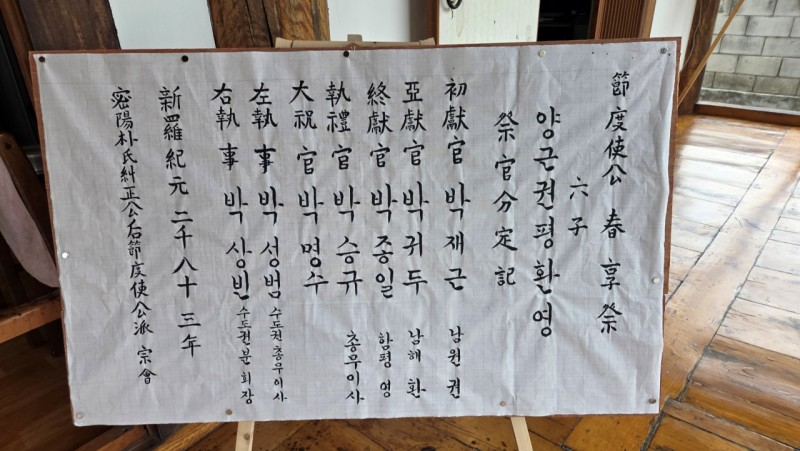 節度使公 春享祭
六子
양근권평환영
祭官分定記
初獻官 박재근 남원 권
亞獻官 박귀두 남해 환
終獻官 박종일 함평 영
執禮官 박승규 총무이사
大祝官 박명수
左執事 박성범 수도권총무이사
右執事 박상빈 수도권분회장
新羅紀元 二千八十三年
密陽朴氏糾正公后節度使公派 宗會